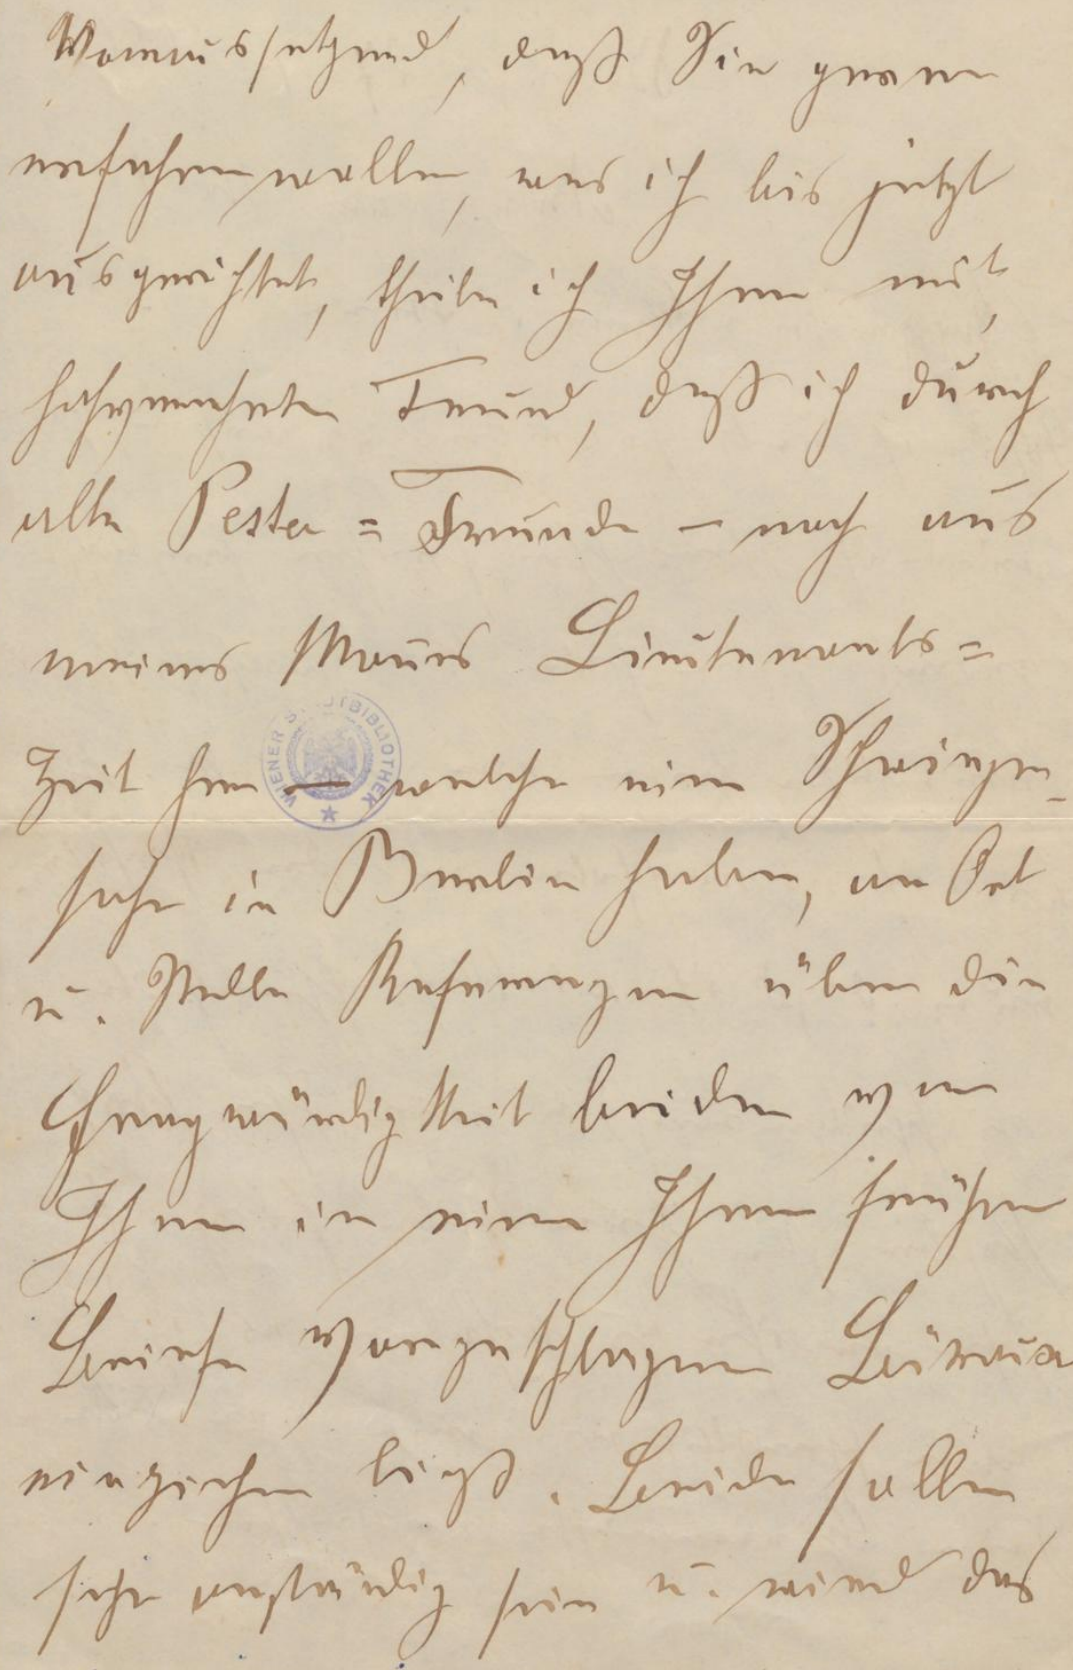 Voraussetzend, daß Sie gerne
erfahren wollen, was ich bis jetzt
ausgerichtet, theile ich Ihnen mit,
hochverehrter Freund, daß ich durch
alte Pester = Freunde – noch aus
meines Mannes Lieutenants =
Zeit her — welche eine Schwieger-
sohn in Berlin haben, an Ort
u. Stelle Referenzen über die
Fragwürdigkeit beider von
Ihnen in einem Ihrer frühern
Briefe vorgeschlagenen Büreaux
einziehen ließ. Beide sollen
sehr anständig sein u. wird das
WIENER STADTBIBLIOTHEK